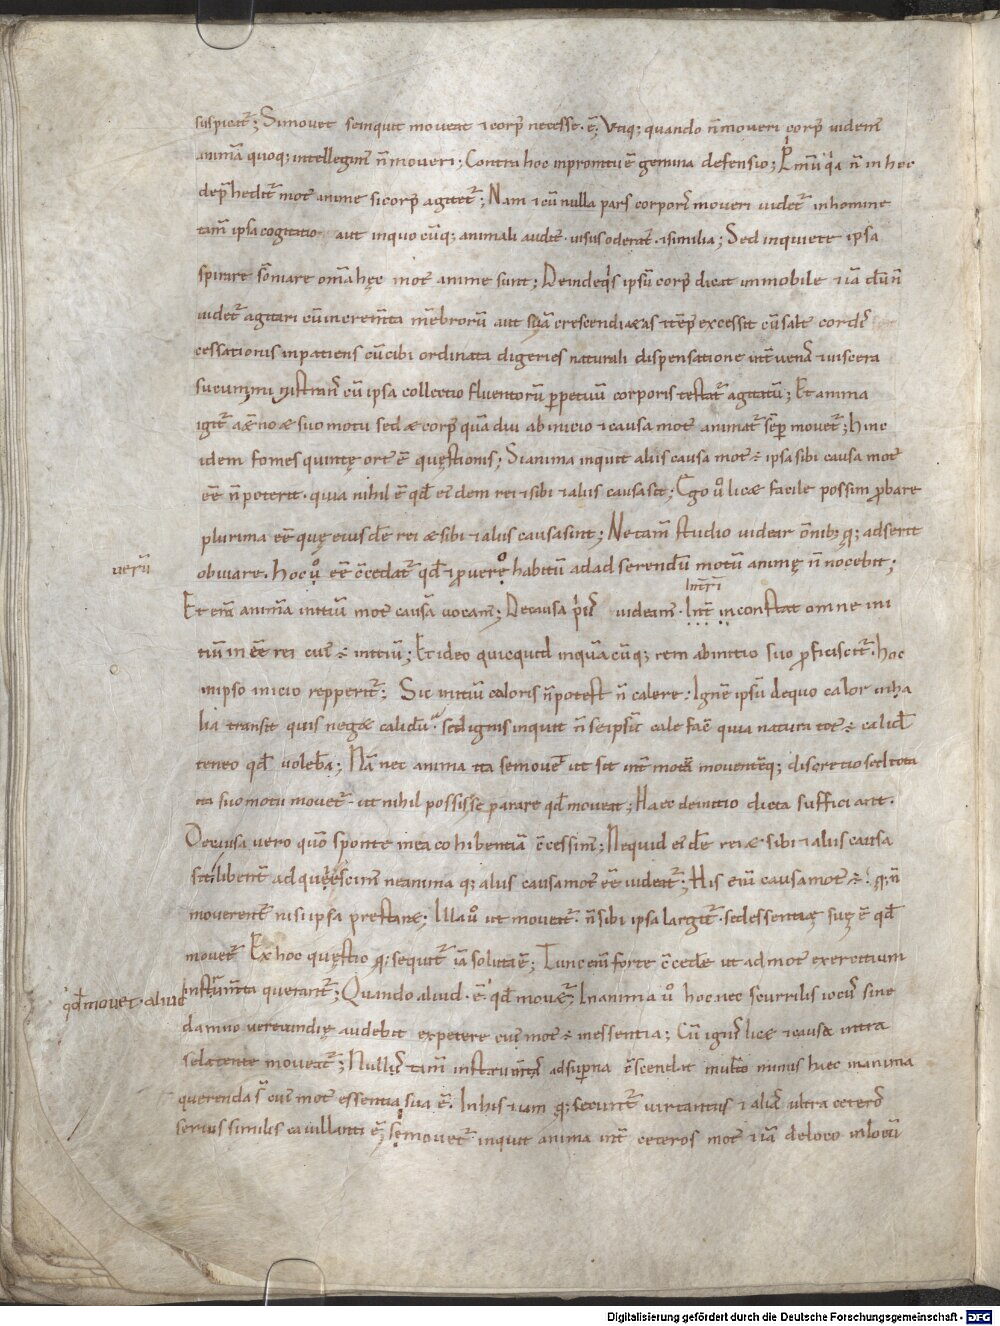 suspicat᷑; Simouet seinquit moueat & corp᷒ necesse·ē; Vtiq; quando n̄ moueri corp᷒ uidem᷒
animā quoq; intellegim᷒ n̄ moueri; Contra hoc inpromtu ē gemina defensio; P̄mū q̇a n̄ in hoc
depͬhendit᷑ mot᷒ anime si corp᷒ agitet᷑; Nam & cū nulla pars corporis moueri uidet᷑ in homine
tam̄ ipsa cogitatio aut in quo cūq; animali audit᷒· uisus odorat᷒· & similia; Sed in quiete ipsa
spirare sōniare om̄a hęc mot᷒ anime sunt; Deinde q̇s ipsū corp᷒ dicat immobile & iā dū n̄
uidet᷑ agitari cū incrementa mēbrorū aut si iā crescendi ætas & tēp᷒ excessit cū salt᷒ cordis
cessationis inpatiens cū cibi ordinata digeries naturali dispensatione int᷑ uenas & uiscera
sucum ministrans cū ipsa collectio fluentorū p̱petuū corporis testat᷑ agitatū; Et anima
igit᷑ æterno & suo motu sed & corp᷒ quā diu ab inicio & causa mot᷒ animat᷑ semp̱ mouet᷑; hinc
idem fomes quintę ort᷒ ē quęstionis; Si anima inquit aliis causa mot᷒ ÷ ipsa sibi causa mot᷒
eē n̄ poterit· quia nihil ē qđ eidem rei & sibi & aliis causa sit; Ego ů licæ facile possim p̱bare
plurima eē quę eiusđe rei & sibi & aliis causa sint; Ne tam̄ studio uidear om̄ib; q; adserit
uerū
obuiare· Hoc ů eē c̄cedat᷑ qđ & p̱ uero habitū ad adserendū motū animę n̄ nocebit;
Et eni͂ animā initiū mot᷒ & causā uocam᷒; De causa p᷒ uideam᷒· Int᷑ in constat omne ini
tiū in eē rei cui᷒ ÷ initiū; Et ideo quicquid in quā cūq; rem ab initio suo p̱ficiscit᷑· hoc
in ipso inicio repperit᷑; Sic initiū caloris n̄ potest n̄ calere; Ignē ipsū de quo calor in ha
lia transit quis negæ calidū· sed ignis inquit n̄ se ipsū cale facit quia natura tot᷒ ÷ calid᷒
teneo qđ uolebā; Nā nec anima ita se mouet ut sit int᷑ motū mouentēq; discretio sed tota
ita suo motu mouet᷑· ut nihil possis separare qđ moueat; Haec de initio dicta sufficiant·
De causa uero quō sponte in ea cohibentiā c̄cessim᷒; Ne quid eiđe rei & sibi & aliis causa
sit libent᷑ adquęscim᷒ ne anima q; aliis causa mot᷒ eē uideat᷑; His eni͂ causa mot᷒ ÷ q; n̄
mouerent᷑ nisi ipsa prestaræ; Illa ů ut moueat᷑· n̄ sibi ipsa largit᷑· sed essentię suę ē qđ
mouet᷑ Ex hoc quęstio q; sequit᷑ iā soluta ē; Tunc eni͂ forte c̄cedā ut ad mot᷒ exercitium
q̇đ mouet·aliud
instrum̄ta querant᷑; Quando aliud·ē qđ mouet᷑; In anima ů hoc nec scurrilis ioc᷒ sine
damno uerecundię audebit expetere cui᷒ mot᷒ ÷ in essentia; Cū ignis licæ ex causa intra
se latente moueat᷑; Nullis tam̄ instrum̄tis ad superna c̄scendat multo minus haec in anima
querenda s᷑ cui᷒ mot᷒ essentia sua ē· In his & iam q; secunt᷑ uir tantus & alias ultra ceteros
serius similis cauillanti ē; Si mouet᷑ inquit anima int᷑ ceteros mot᷒ & iā de loco in locū